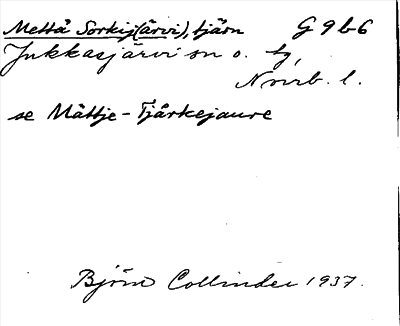 Mettä Sorkij(ärvi), tjärn G 9 b 6
Jukkasjärvi sn o. tg,
Norrb. l.
se Måttje-Tjårkejaure
Björn Collinder 1937.